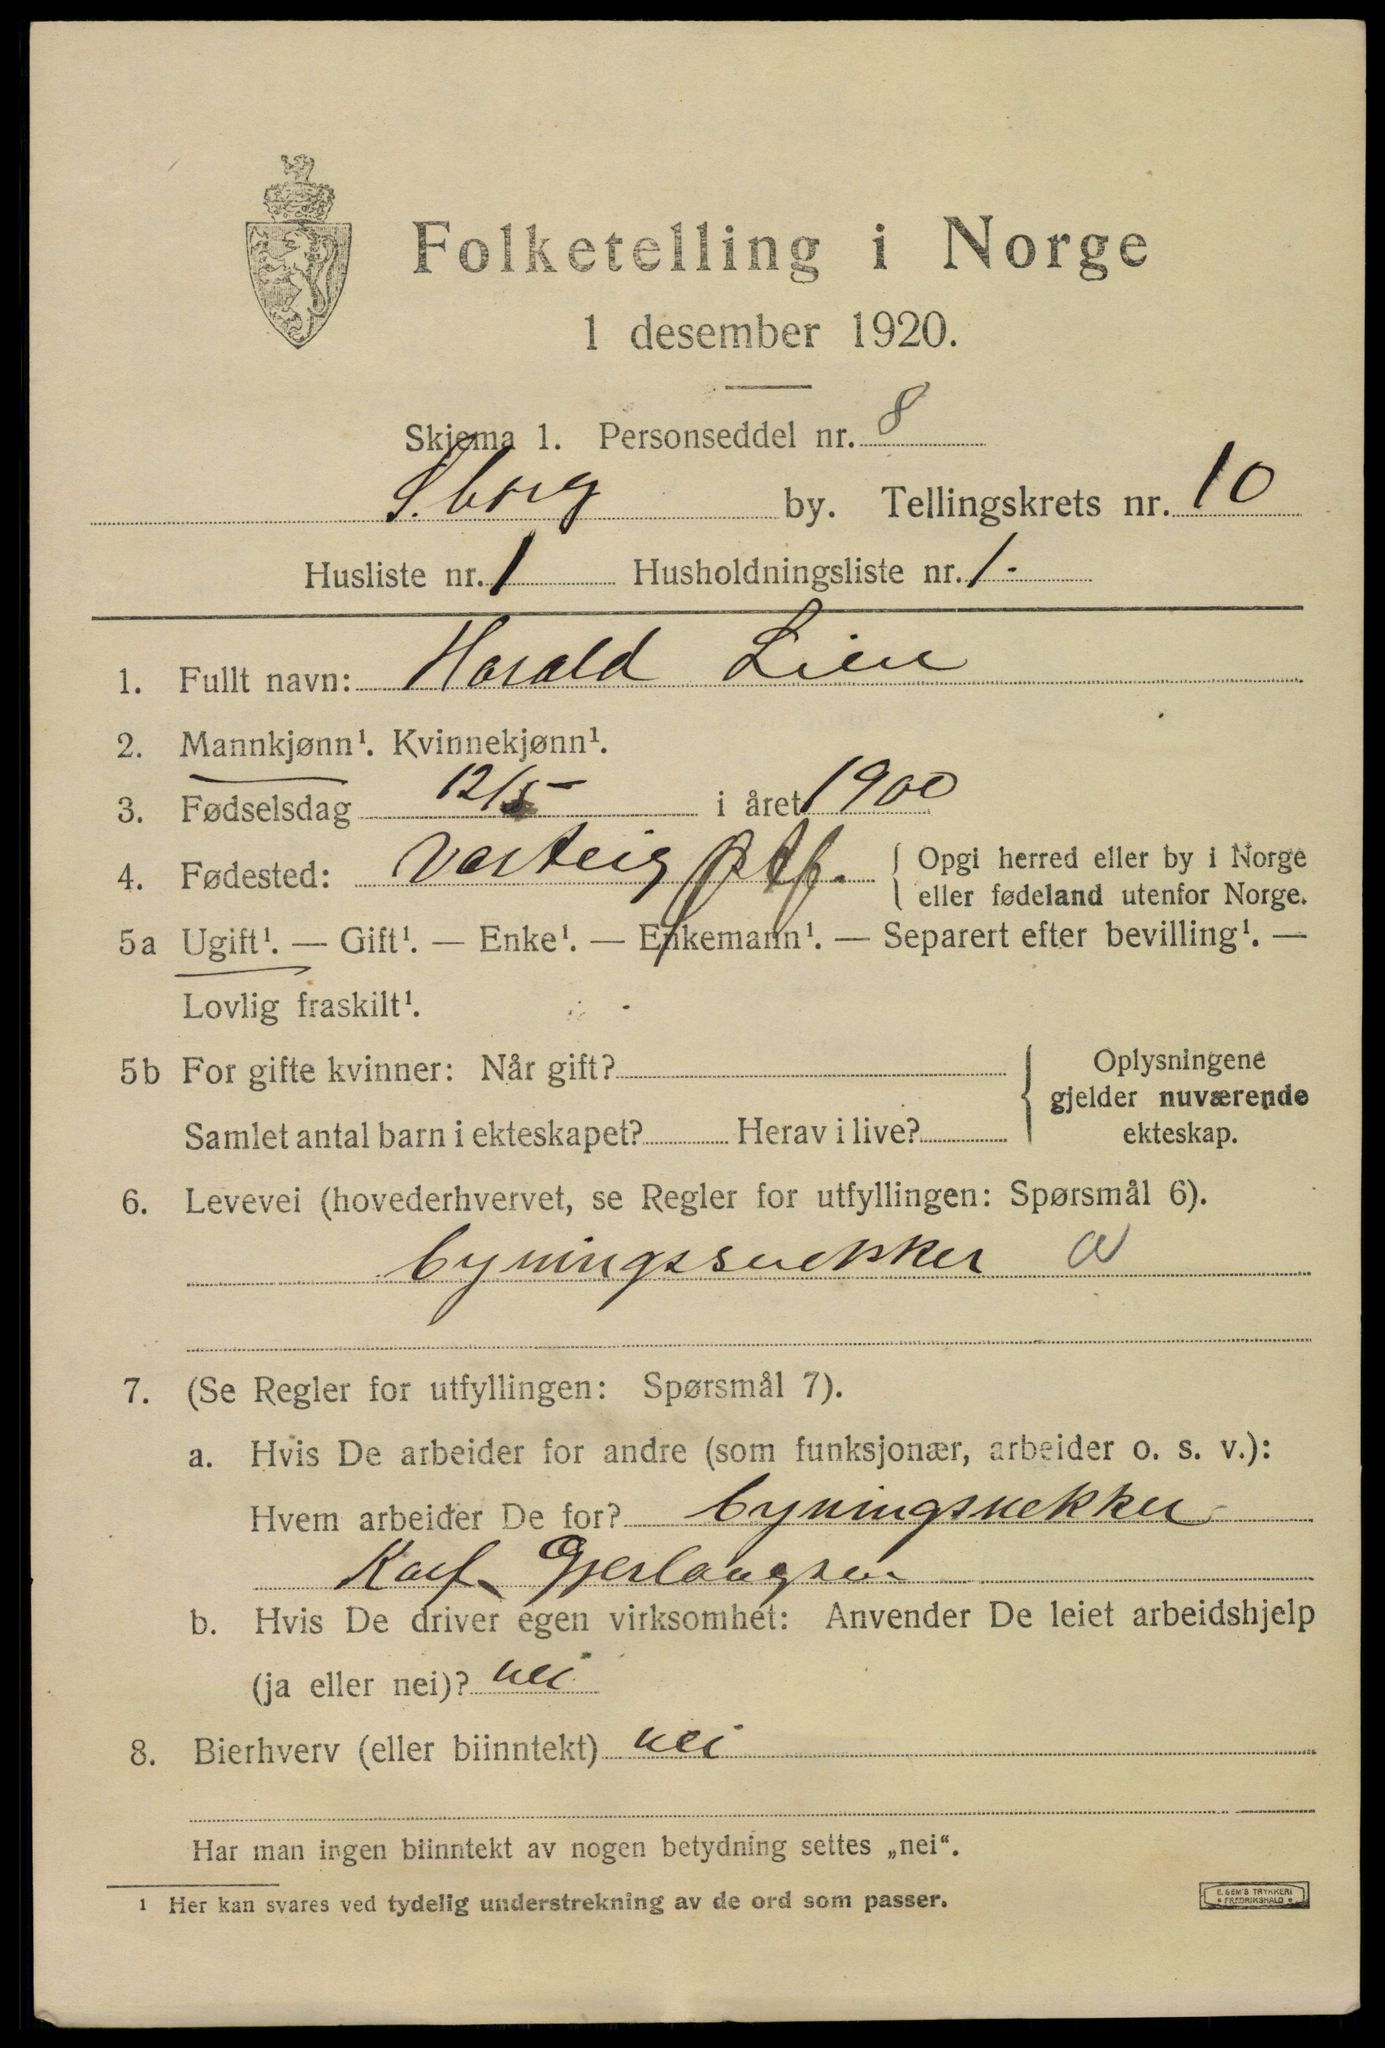 Folketelling i Norge
1 desember 1920.
Skjema 1. Personseddel nr. 8
S.borg by. Tellingskrets nr. 10
Husliste nr. 1 Husholdningsliste nr. 1.
1. Fullt navn: Harald Lien
2. Mannkjønn¹. Kvinnekjønn¹.
3. Fødselsdag 12/5 i året 1900
4. Fødested: Varteig { Opgi herred eller by i Norge
eller fødeland utenfor Norge.
5a Ugift¹. — Gift¹. — Enke¹. — Enkemann¹. — Separert efter bevilling¹. —
Lovlig fraskilt¹.
5b For gifte kvinner: Når gift? { Oplysningene
gjelder nuværende
Samlet antal barn i ekteskapet? Herav i live? ekteskap.
6. Levevei (hovederhvervet, se Regler for utfyllingen: Spørsmål 6).
bygningssnekker a
7. (Se Regler for utfyllingen: Spørsmål 7).
a. Hvis De arbeider for andre (som funksjonær, arbeider o. s. v.):
Hvem arbeider De for? bygningsnekker
Karl Gjerlaugsen
b. Hvis De driver egen virksomhet: Anvender De leiet arbeidshjelp
(ja eller nei)? nei
8. Bierhverv (eller biinntekt) nei
Har man ingen biinntekt av nogen betydning settes „nei“.
¹ Her kan svares ved tydelig understrekning av de ord som passer.
E. SEM'S TRYKKERI
FREDRIKSHALD